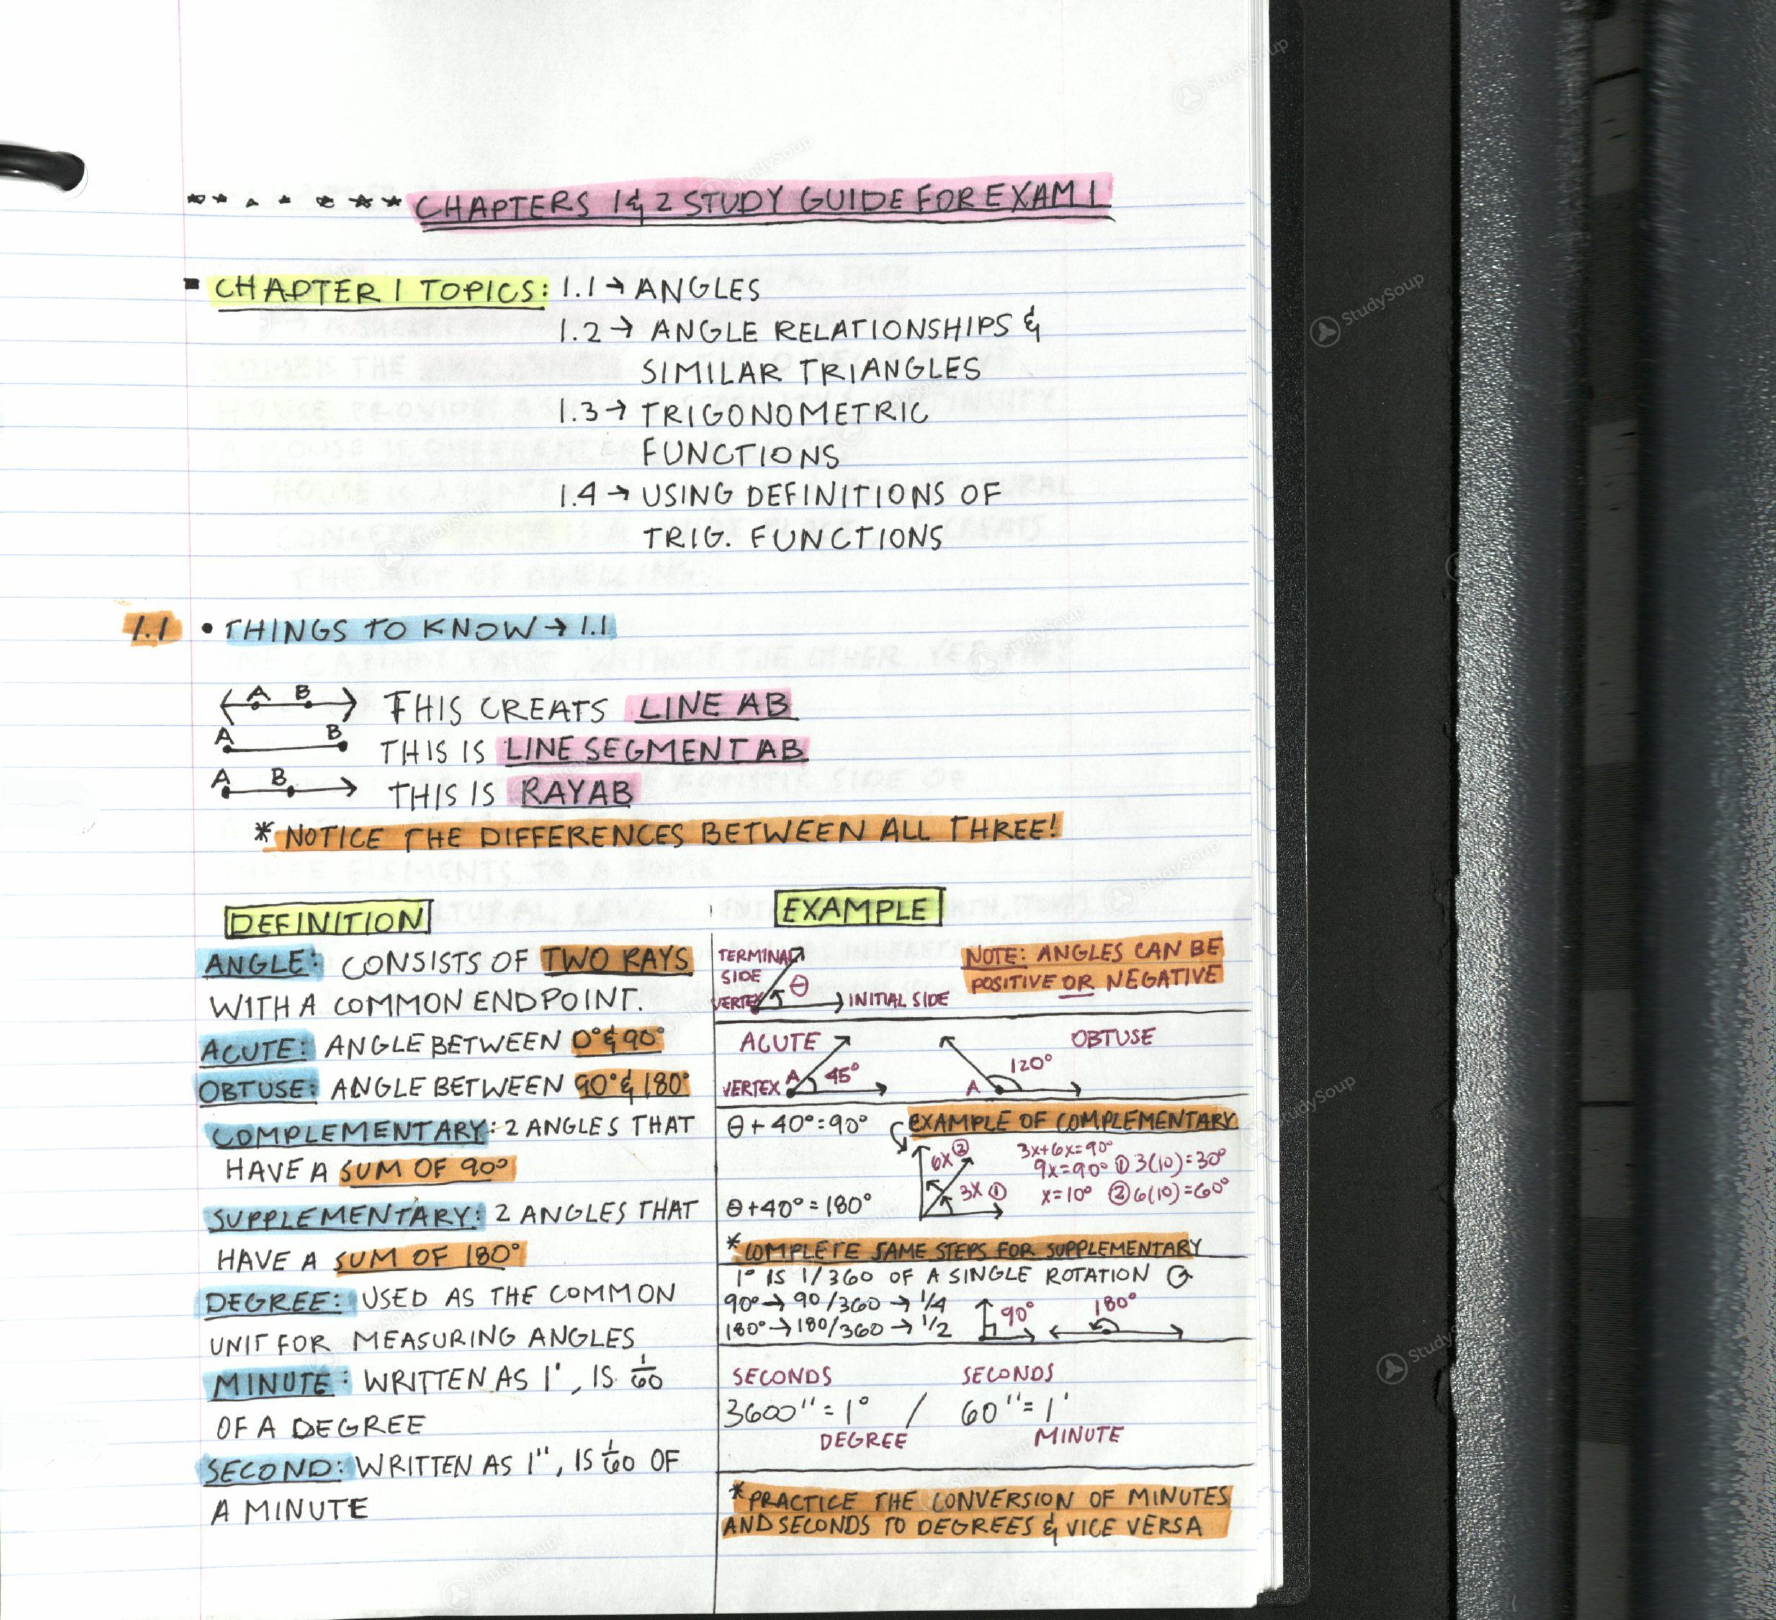 CHAPTERS 1 & 2 STUDY GUIDE FOR EXAM 1
CHAPTER 1 TOPICS: 1.1 → ANGLES
1.2 → ANGLE RELATIONSHIPS &
SIMILAR TRIANGLES
1.3 → TRIGONOMETRIC
FUNCTIONS
1.4 → USING DEFINITIONS OF
TRIG. FUNCTIONS
1.1 • THINGS TO KNOW → 1.1
A B THIS CREATS LINE AB
A B THIS IS LINE SEGMENT AB
A B THIS IS RAY AB
* NOTICE THE DIFFERENCES BETWEEN ALL THREE!
DEFINITION
ANGLE: CONSISTS OF TWO RAYS
WITH A COMMON ENDPOINT.
ACUTE: ANGLE BETWEEN 0° & 90°
OBTUSE: ANGLE BETWEEN 90° & 180°
COMPLEMENTARY: 2 ANGLES THAT
HAVE A SUM OF 90°
SUPPLEMENTARY: 2 ANGLES THAT
HAVE A SUM OF 180°
DEGREE: USED AS THE COMMON
UNIT FOR MEASURING ANGLES
MINUTE: WRITTEN AS 1', IS 1/60
OF A DEGREE
SECOND: WRITTEN AS 1", IS 1/60 OF
A MINUTE
EXAMPLE
TERMINAL
SIDE
θ
VERTEX INITIAL SIDE
NOTE: ANGLES CAN BE
POSITIVE OR NEGATIVE
ACUTE
VERTEX A 45°
OBTUSE
A 120°
θ + 40° = 90°
EXAMPLE OF COMPLEMENTARY
6x ②
3x ①
3x+6x=90°
9x=90° ① 3(10)=30°
x=10° ② 6(10)=60°
θ + 40° = 180°
* COMPLETE SAME STEPS FOR SUPPLEMENTARY
1° IS 1/360 OF A SINGLE ROTATION
90° → 90/360 → 1/4 90° 180°
180° → 180/360 → 1/2
SECONDS SECONDS
3600" = 1° / 60" = 1'
DEGREE MINUTE
* PRACTICE THE CONVERSION OF MINUTES
AND SECONDS TO DEGREES & VICE VERSA
StudySoup
StudySoup
StudySoup
StudySoup
StudySoup
StudySoup